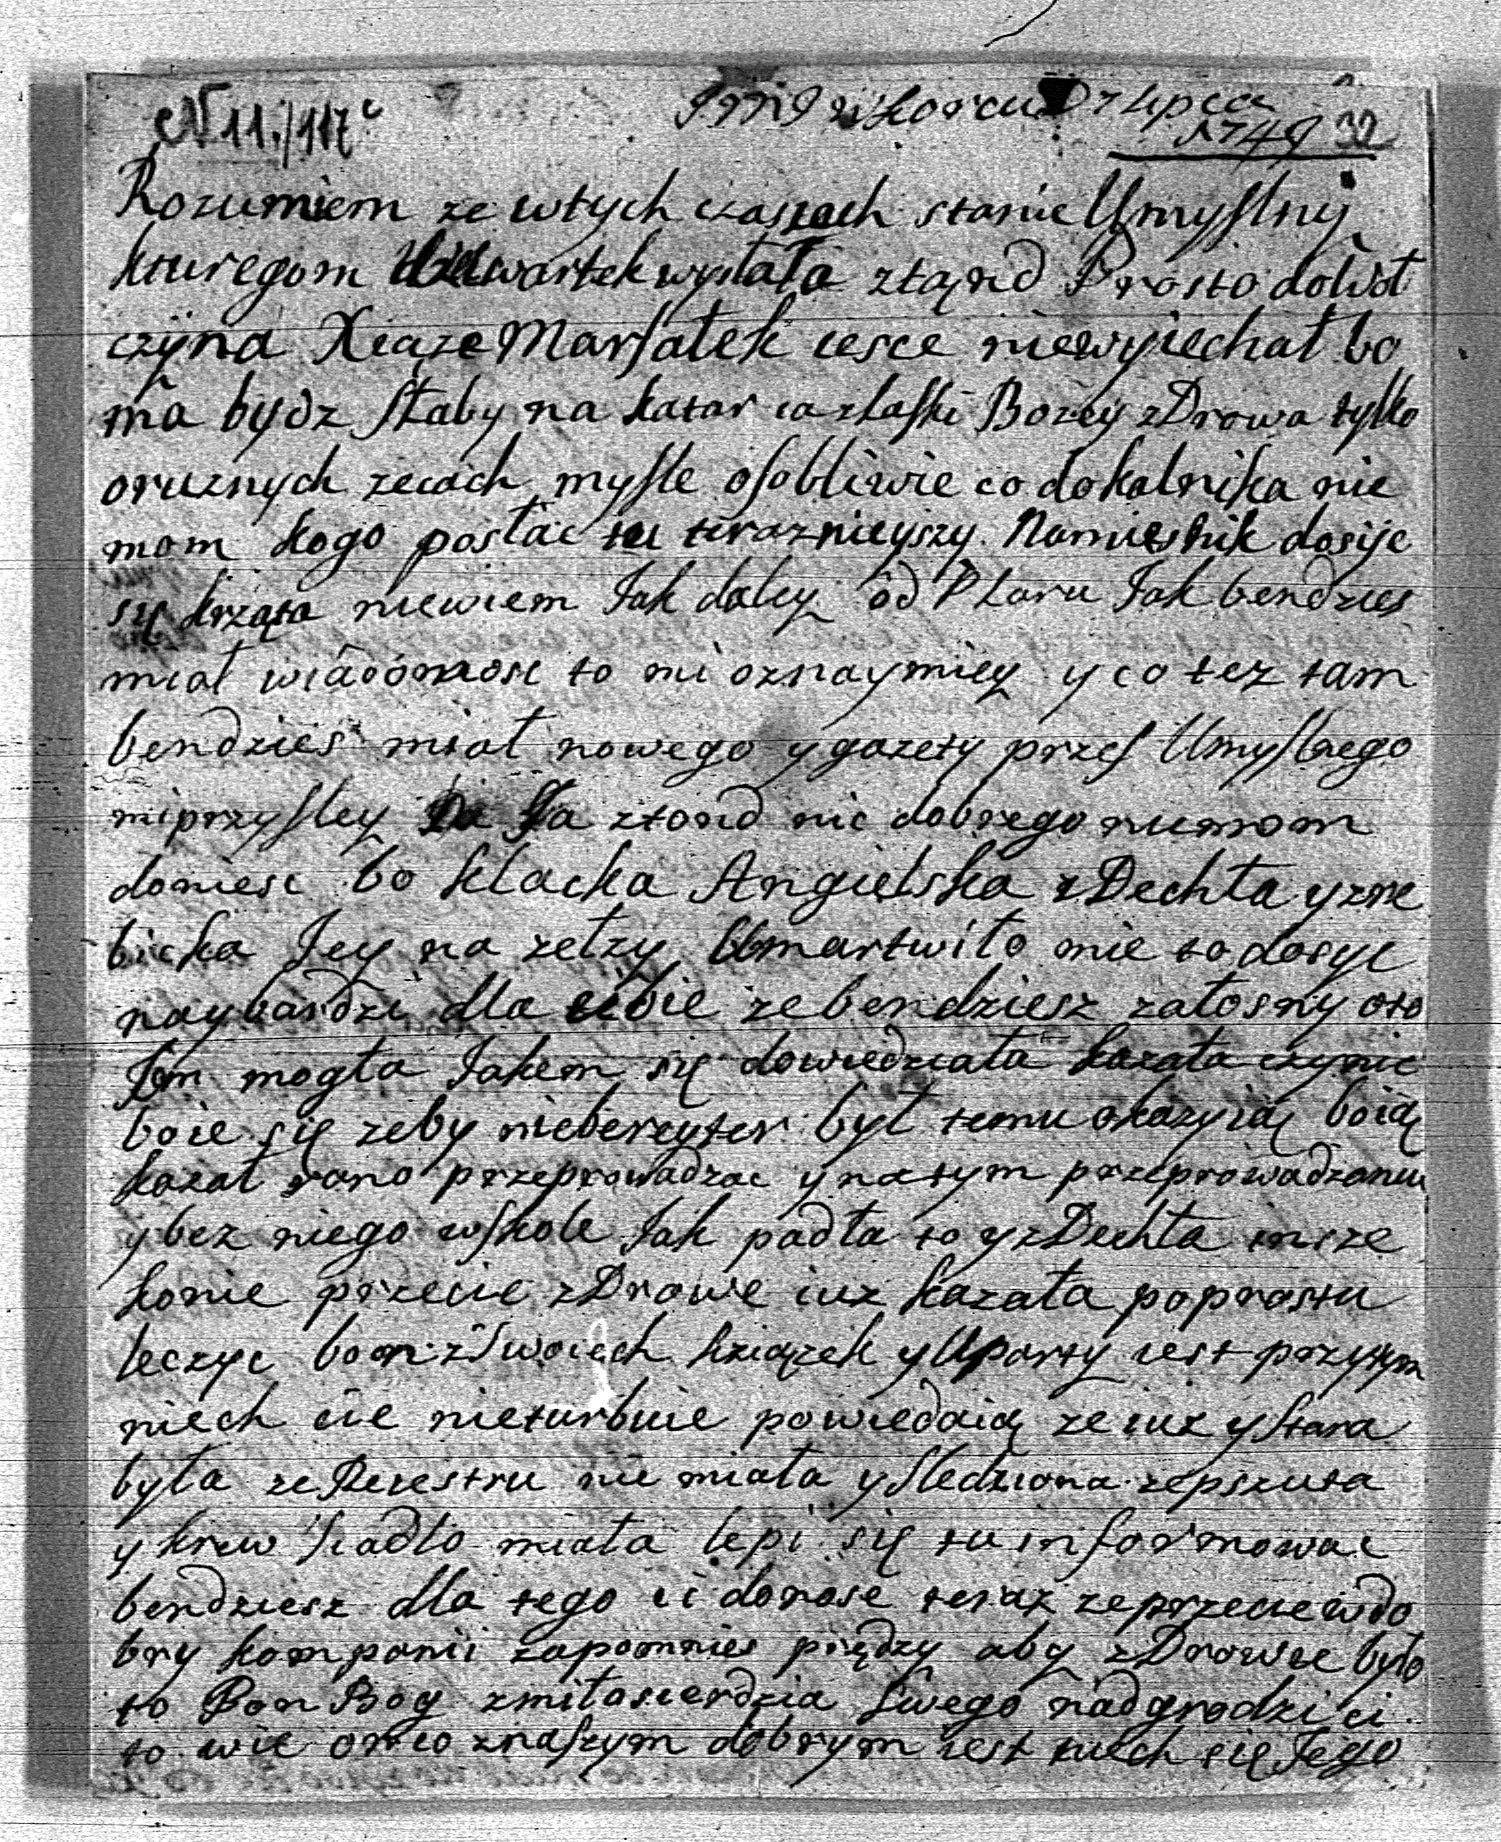 N 11./117
D 7 lipca
1748 32
Rozumiem ze wtych czaszach stanie Umyslny
kturegom wczwartek wysłała ztąnd Prosto doWoł
czyna Xiąze Marsałek iesce niewyiechał bo
ma bydz słaby na katar ia złaski Bozey zDrowa tylko
oruznych zecach mysle osobliwie co dokalnika nie
mom kogo posłac tu teraznieyszy Namiesnik dosyc
się krząta niewiem Jak daley od Pzaru Jak bendzies
miał wiadomosc to mi oznaymiey y co tez tam
bendzies miał nowego y gazety przes Umyslnego
miprzysley Ja ztond nic dobrego niemom
doniesc bo klacka Angielska zDechła y zre
bicka Jey na zełzy Umartwiło mie to dosyc
naybardzi dla ciebie ze bendziesz załosny oto
Jom mogła Jakem się dowiedziała kazała czynic
boie się zeby niebereyter był temu okazyią boią
kazał rano przeprowadzac y natym przeprowadzaniu
y bez niego wskole Jak padła to y zDechła insze
konie przecie zDrowe iuz kazała poprostu
leczyc bo on zSwoiech kziązek y Uparty iest przytym
niech cie nieturbuie powiedaią ze iuz y stara
była ze Reiestru nie miała y sledziona zepszuta
y krew siadło miała lepi się tu informowac
bendziesz dla tego ci donose teraz ze przecie wdo
bry kompanii zapomnies prędzy aby zDrowie było
to Pan Bog zmiłosierdzia swego nadgrodzi ci
to wie on co znaszym dobrym iest niech się Jego